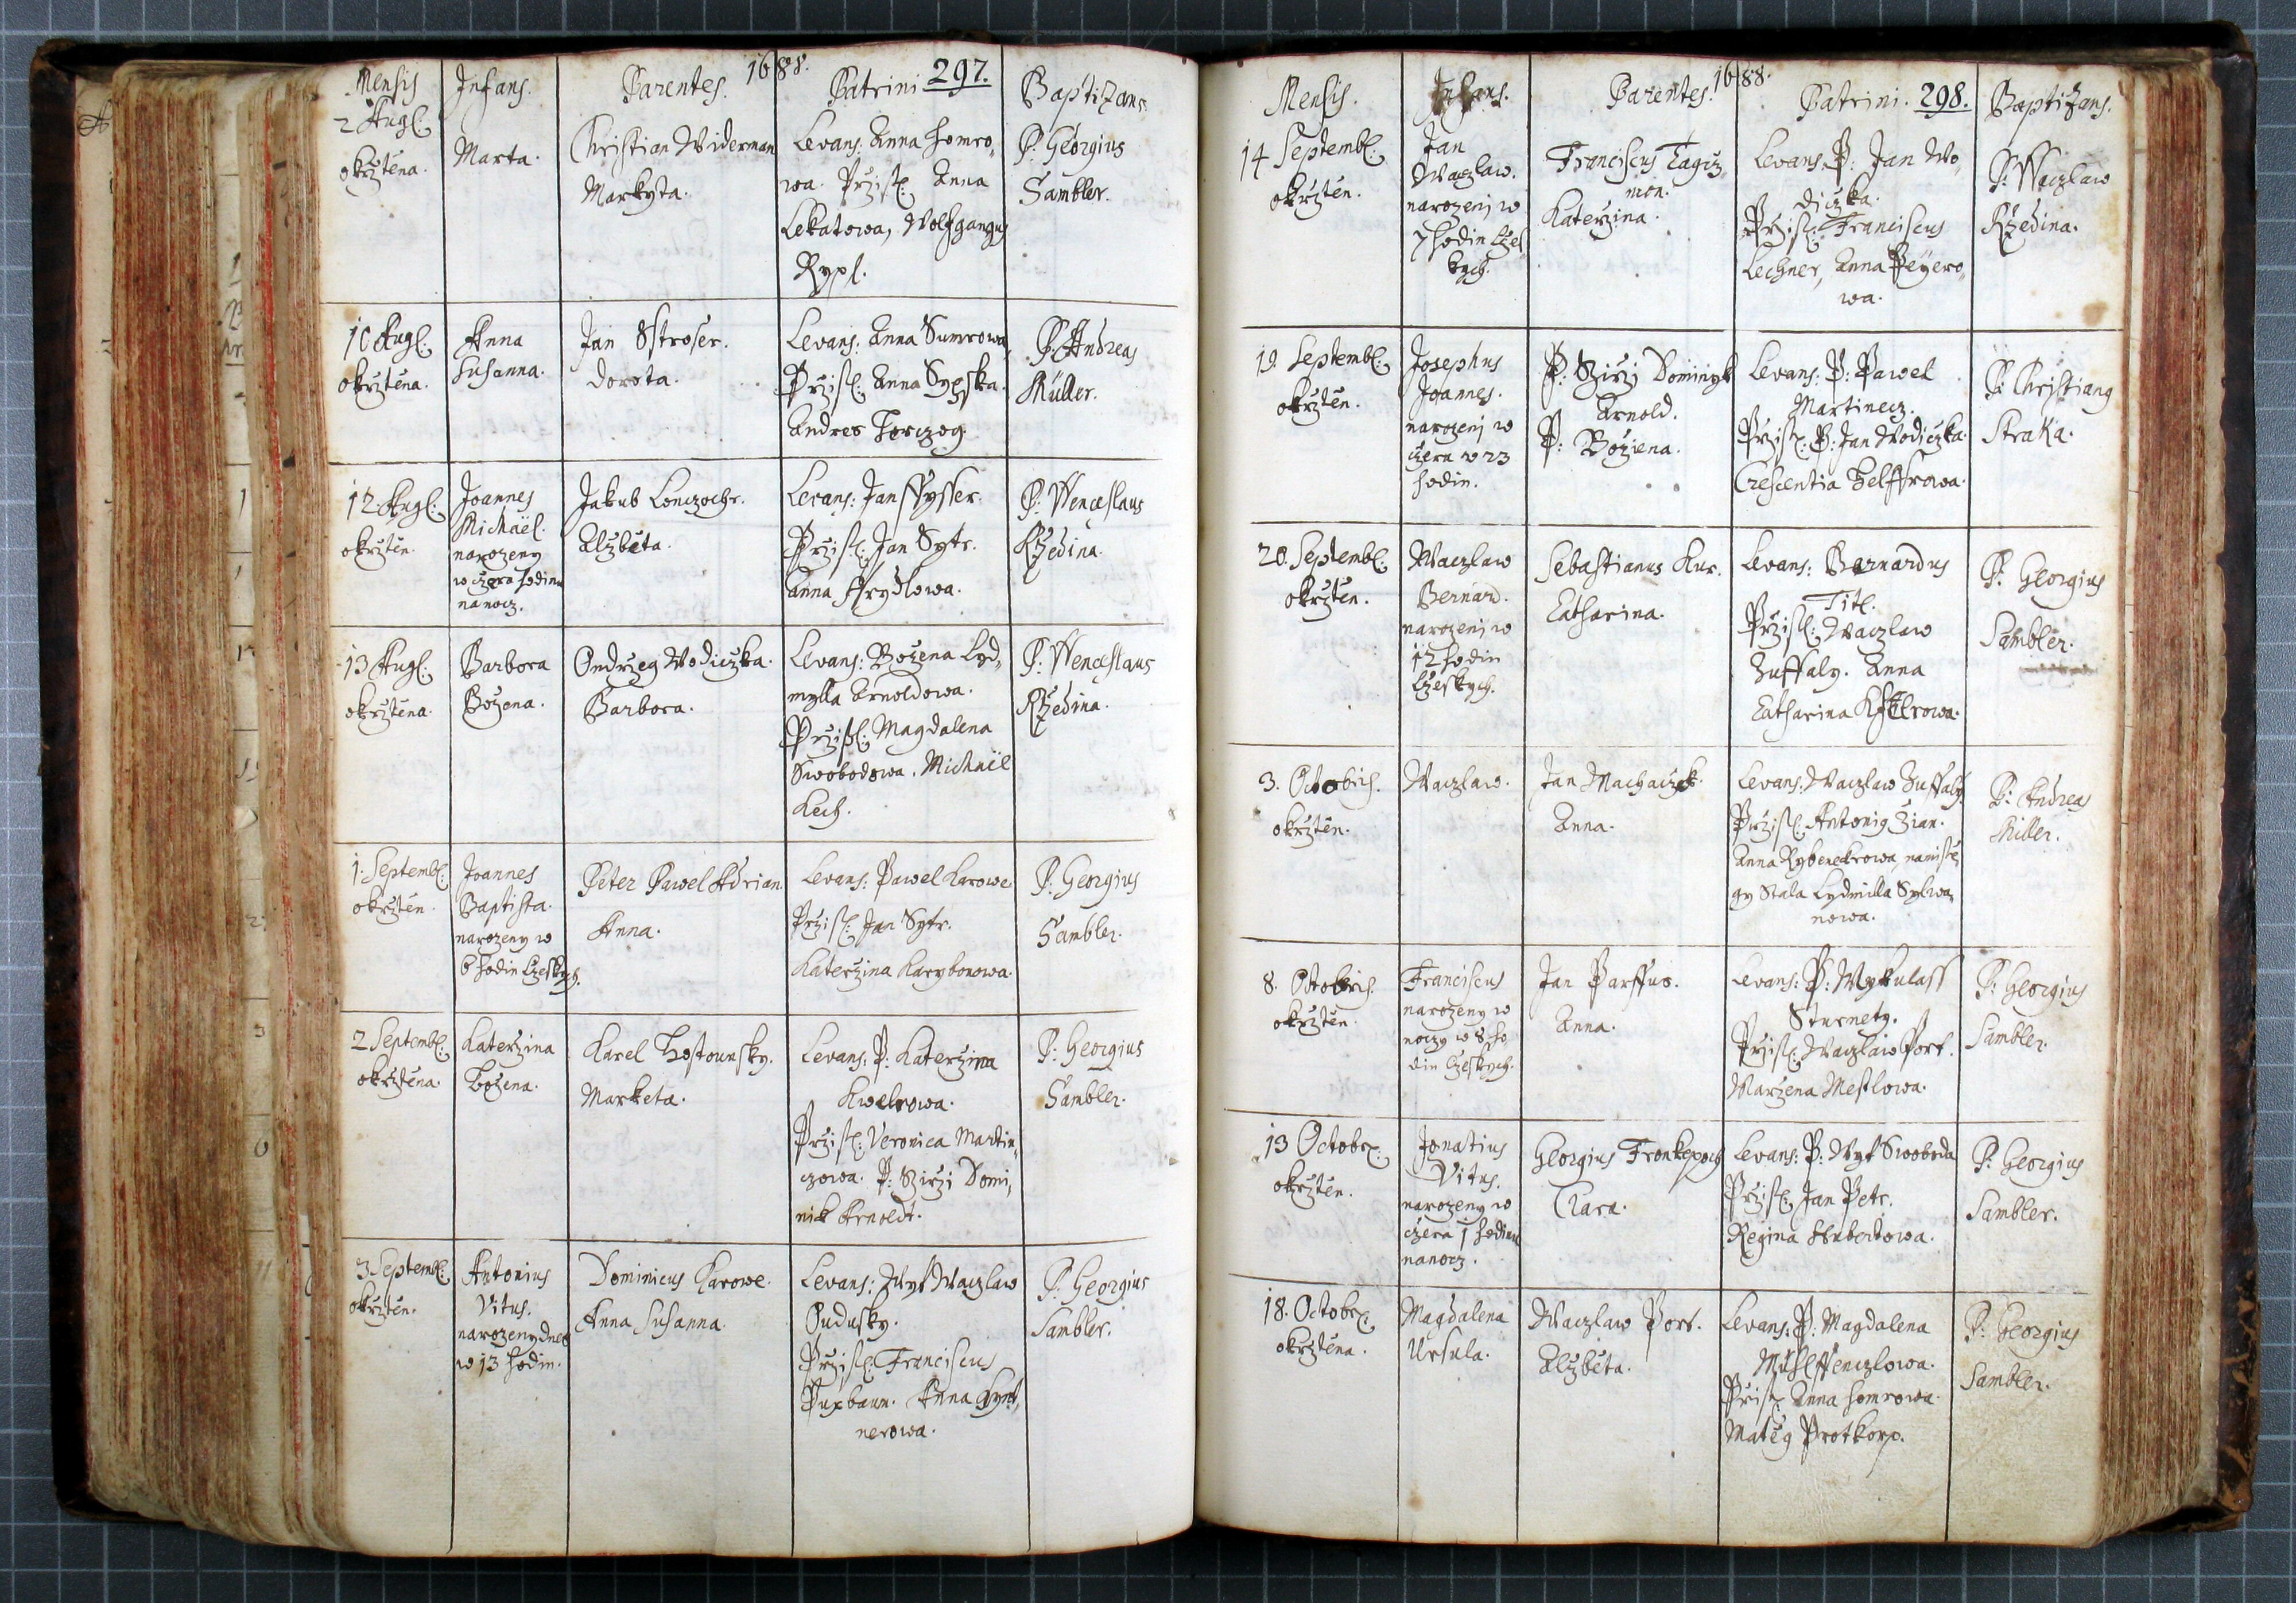 1688.
297.
Mensis
Infans.
Parentes.
Patrini
Baptizans
2 Augl:
okrztena.
Marta.
Christian Widerman
Markyta.
Levans: Anna Homro,,
wa. Przisl: Anna
Lekatowa, Wolfgangus
Rypl.
P: Georgius
Sambler.
10 Augl:
okrztena.
Anna
Susanna.
Jan Stroser.
Dorota.
Levans: Anna Sumrowa,
Przisl: Anna
Andres
P: Andreas
Müller.
12 Augl:
okrzten.
Joannes
Michaël.
narozeny
wczera hodinu
na nocz.
Jakub
Alzbeta.
Levans: Jan ffysser.
Przisl: Jan Sytr.
Anna ffrydlowa.
P: Wenceslaus
Rzedina.
13 Augl:
okrztena.
Barbora
Bozena.
Ondrzeg Wodiczka.
Barbora.
Levans: Bozena Lyd,,
mylla Arnoldowa.
Przisl: Magdalena
Swobodowa. Michaël
Kech.
P: Wenceslaus
Rzedina.
1. Septembl:
okrzten.
Joannes
Baptista.
narozeny w
6 hodin Czeskych.
Peter Pawel Adrian
Anna.
Levans: Pawel Karowe
Przisl: Jan Sytr.
Katerzina Karyborowa.
P: Georgius
Sambler.
2 Septembl:
okrztena.
Katerzina
Bozena.
Karel Hostounsky.
Marketa.
Levans: P: Katerzina
Kwelrowa.
Przisl: Veronica Martin,,
czowa. P: Girzi Domi,,
nik Arnoldt.
P: Georgius
Sambler.
3 Septembl:
okrzten.
Antonius
Vitus.
narozeny dnes
w 13 hodin.
Dominicus Karowe.
Anna Susanna.
Levans: Wyt Waczlaw
Dudusky.
Przisl: Franciscus
Puxbaum. Anna
nerowa.
P: Georgius
Sambler.
1688.
298.
Mensis.
Infans.
Parentes.
Patrini.
Baptizans.
14 Septembl:
okrzten.
Jan
Waczlaw.
narozeny w
7 hodin Czes
kych.
Franciscus Tagcz,,
mon.
Katerzina.
Levans: P: Jan Wo,,
diczka.
Przisl: Franciscus
Lechner, Anna Peyero,,
wa.
P: Waczlaw
Rzedina.
19. Septembl:
okrzten.
Josephus
Joannes.
narozeny w
czera w 23
hodin.
P: Girzi Dominyk
Arnold.
P: Boziena.
Levans: P: Pawel
Martinecz.
Przisl: P: Jan Wodiczka.
Crescentia Helffrowa.
P: Christiang
Straka.
20. Septembl:
okrzten.
Waczlaw
Bernard.
narozeny w
12 hodin
Czeskych.
Sebastianus Kur.
Catharina.
Levans: Bernardus
Titl.
Przisl: Waczlaw
Zuffaly. Anna
Catharina
P: Georgius
Sambler.
3. Octobris.
okrzten.
Waczlaw.
Jan Machaczek.
Anna.
Levans: Waczlaw Zuffaly.
Przisl: Antonig Zian.
Anna Rybenekrowa, namiste
gy stala Lydmilla Sylwa,,
nowa.
P: Andreas
Miller.
8. Octobris.
okrzten.
Franciscus
narozeny w
noczy w 8 ho
din Czeskych.
Jan Parffus.
Anna.
Levans: P: Mykulass
Sturnety.
Przisl: Waczlaw Port.
Marzena Meslowa.
P: Georgius
Sambler.
13 Octobr:
okrzten.
Ignatius
Vitus.
narozeny w
czera 1 hodinu
nanocz.
Georgius
Clara.
Levans: P: Wyt Swoboda
Przisl: Jan Petr.
Regina Hubertowa.
P: Georgius
Sambler.
18. Octobr:
okrztena.
Magdalena
Ursula.
Waczlaw Port.
Alzbeta.
Levans: P: Magdalena
Mühlffenczlowa.
Przisl: Anna Homrowa.
Mateg Protkorp.
P: Georgius
Sambler.